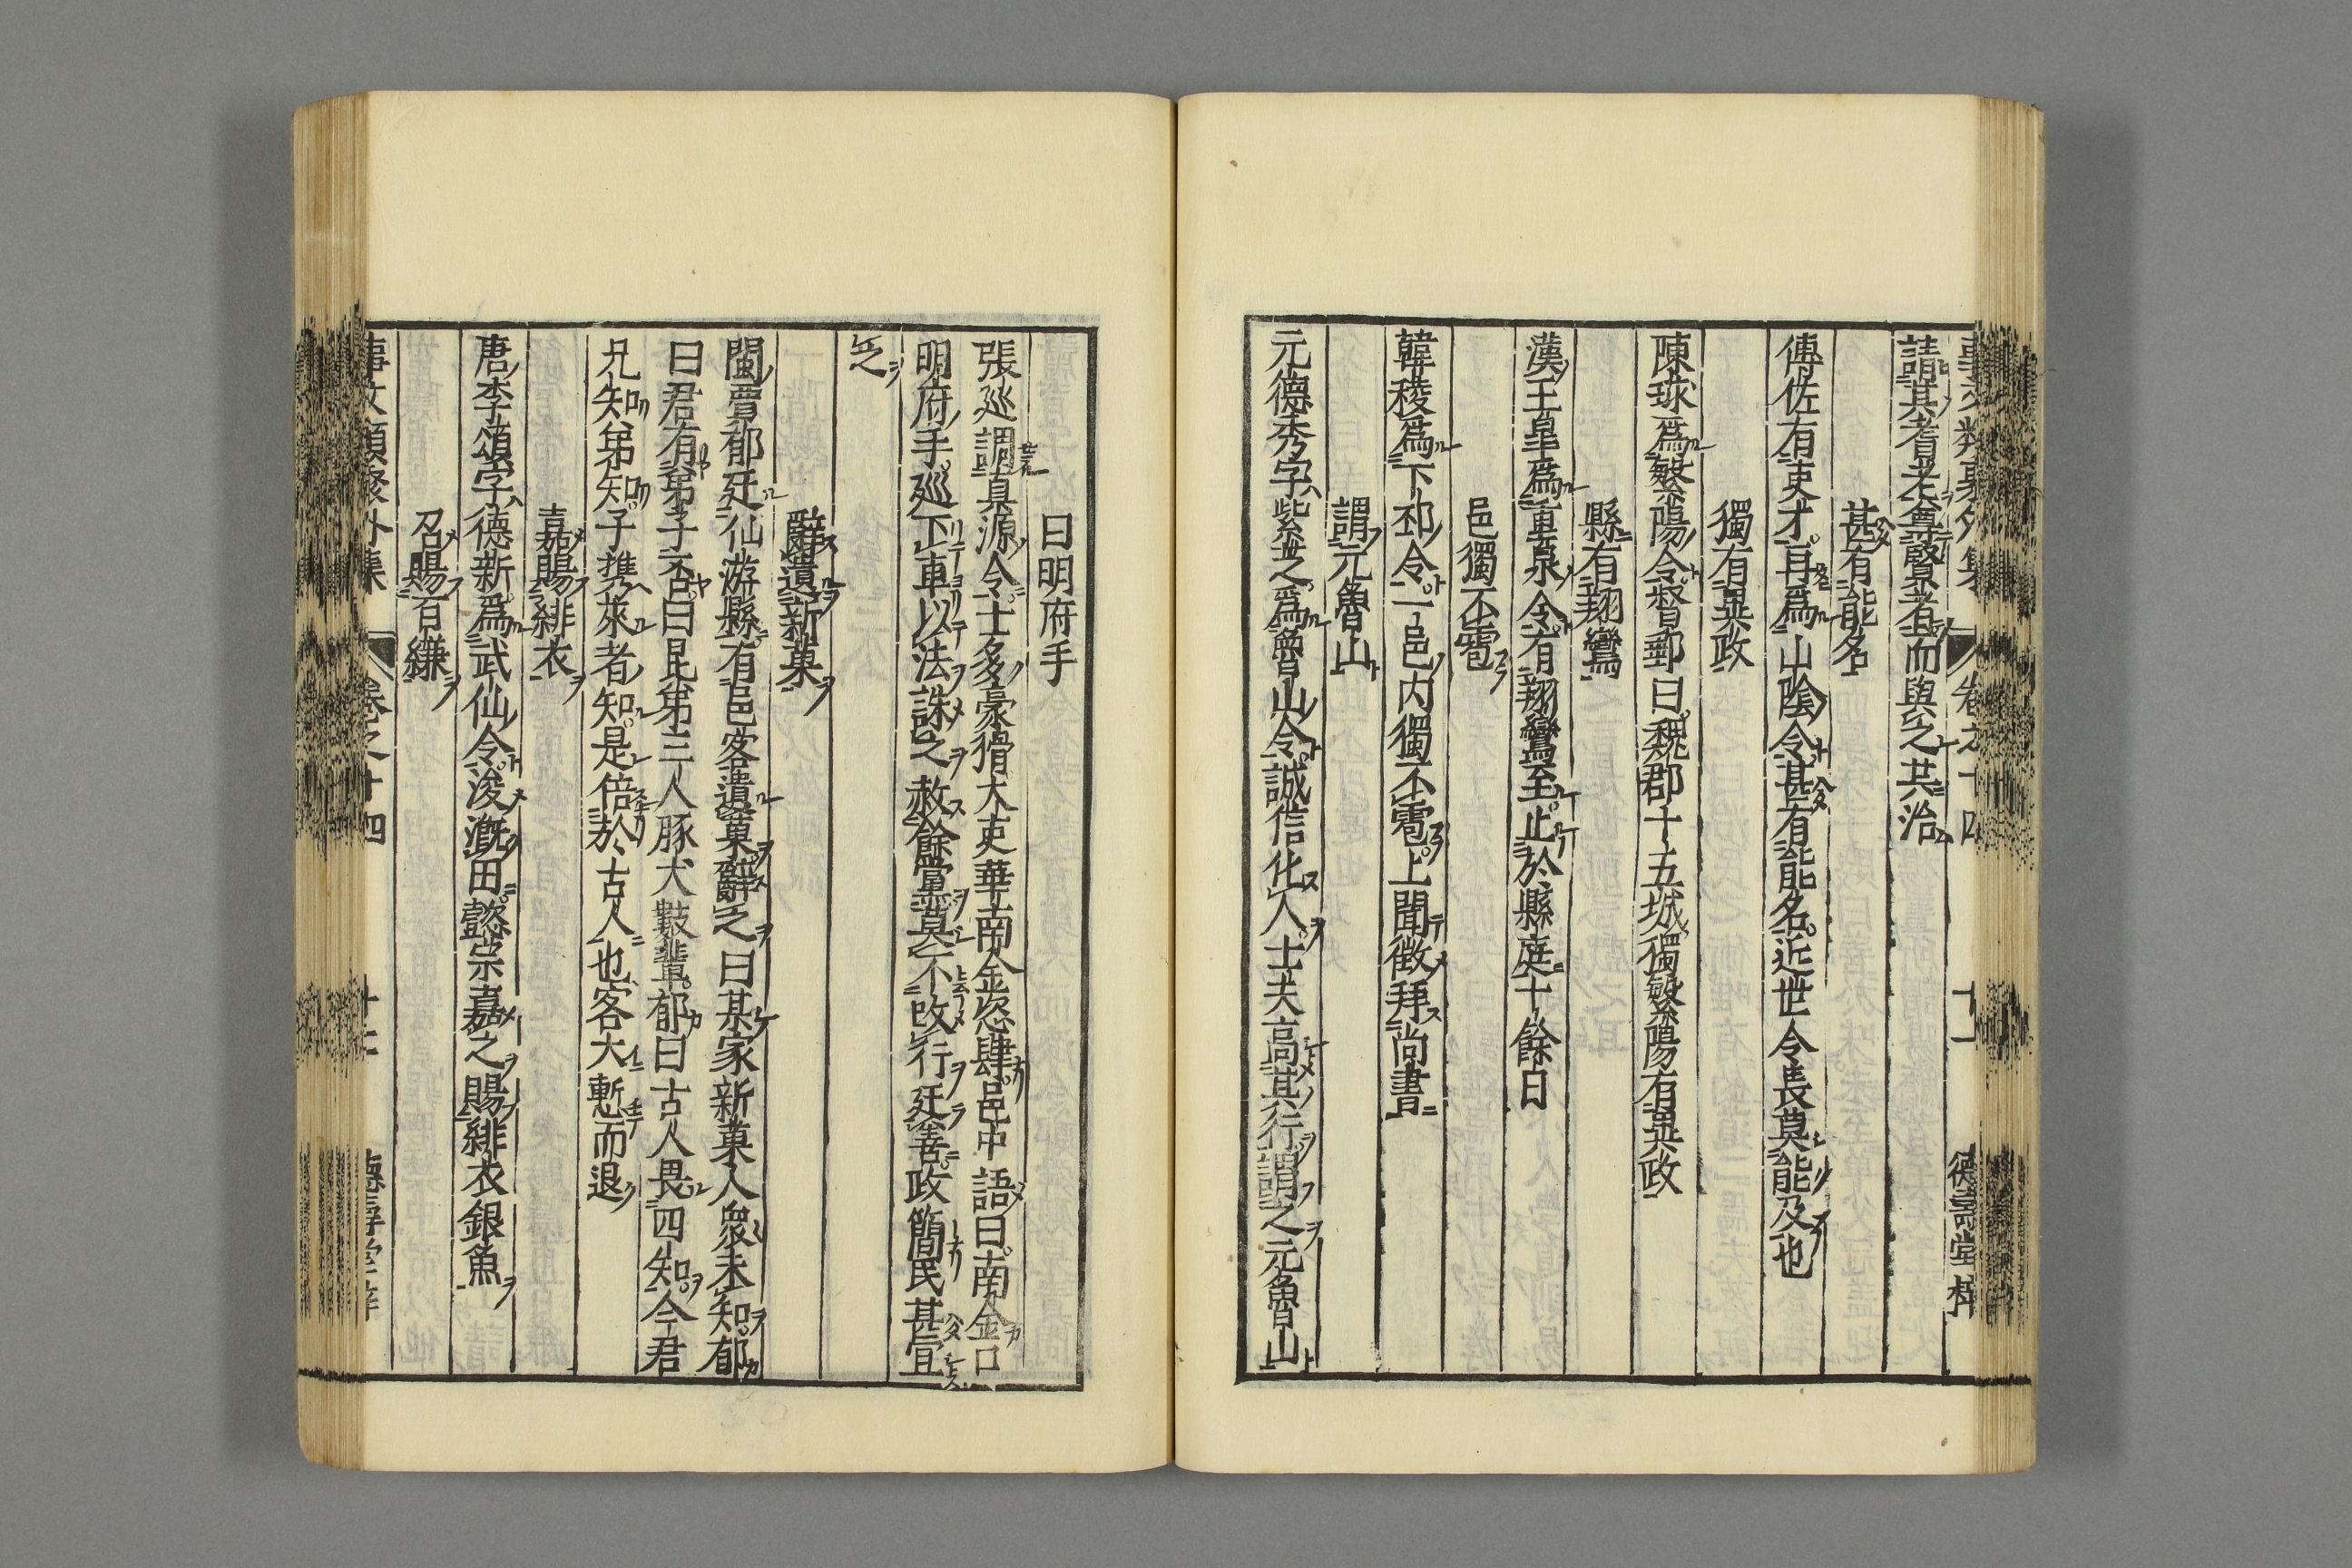 請其耆老尊賢者而與之共治
甚有能名
傅佐有吏才再爲山陰令甚有能名近世令長莫能及也
獨有異政
陳球爲繁陽令督郵曰魏郡十五城獨繁陽有異政
縣有翔鸞
漢王阜爲重泉令有翔鸞至止於縣庭十餘日
邑獨不雹
韓稜爲下邳令一邑内獨不雹上聞徴拜尚書
謂元魯山
元德秀字紫芝爲魯山令誠信化人士夫高其行謂之元魯山
曰明府手
張巡調真源令士多豪猾大吏華南金恣肆邑中語曰南金口
明府手巡下車以法誅之赦餘黨莫不改行遷善政簡民甚宜
之
辭遺新菓
閩賈郁廷仙游縣有邑客遺菓辭之曰某家新菓人衆未知郁
曰君有弟子否曰昆弟三人豚犬數輩郁曰古人畏四知今君
兄知弟知子携來者知是倍於古人也客大慙而退
嘉賜緋衣
唐李頻字德新爲武仙令浚漑田懿宗嘉之賜緋衣銀魚
召賜百縑
事文類聚外集 卷之十四